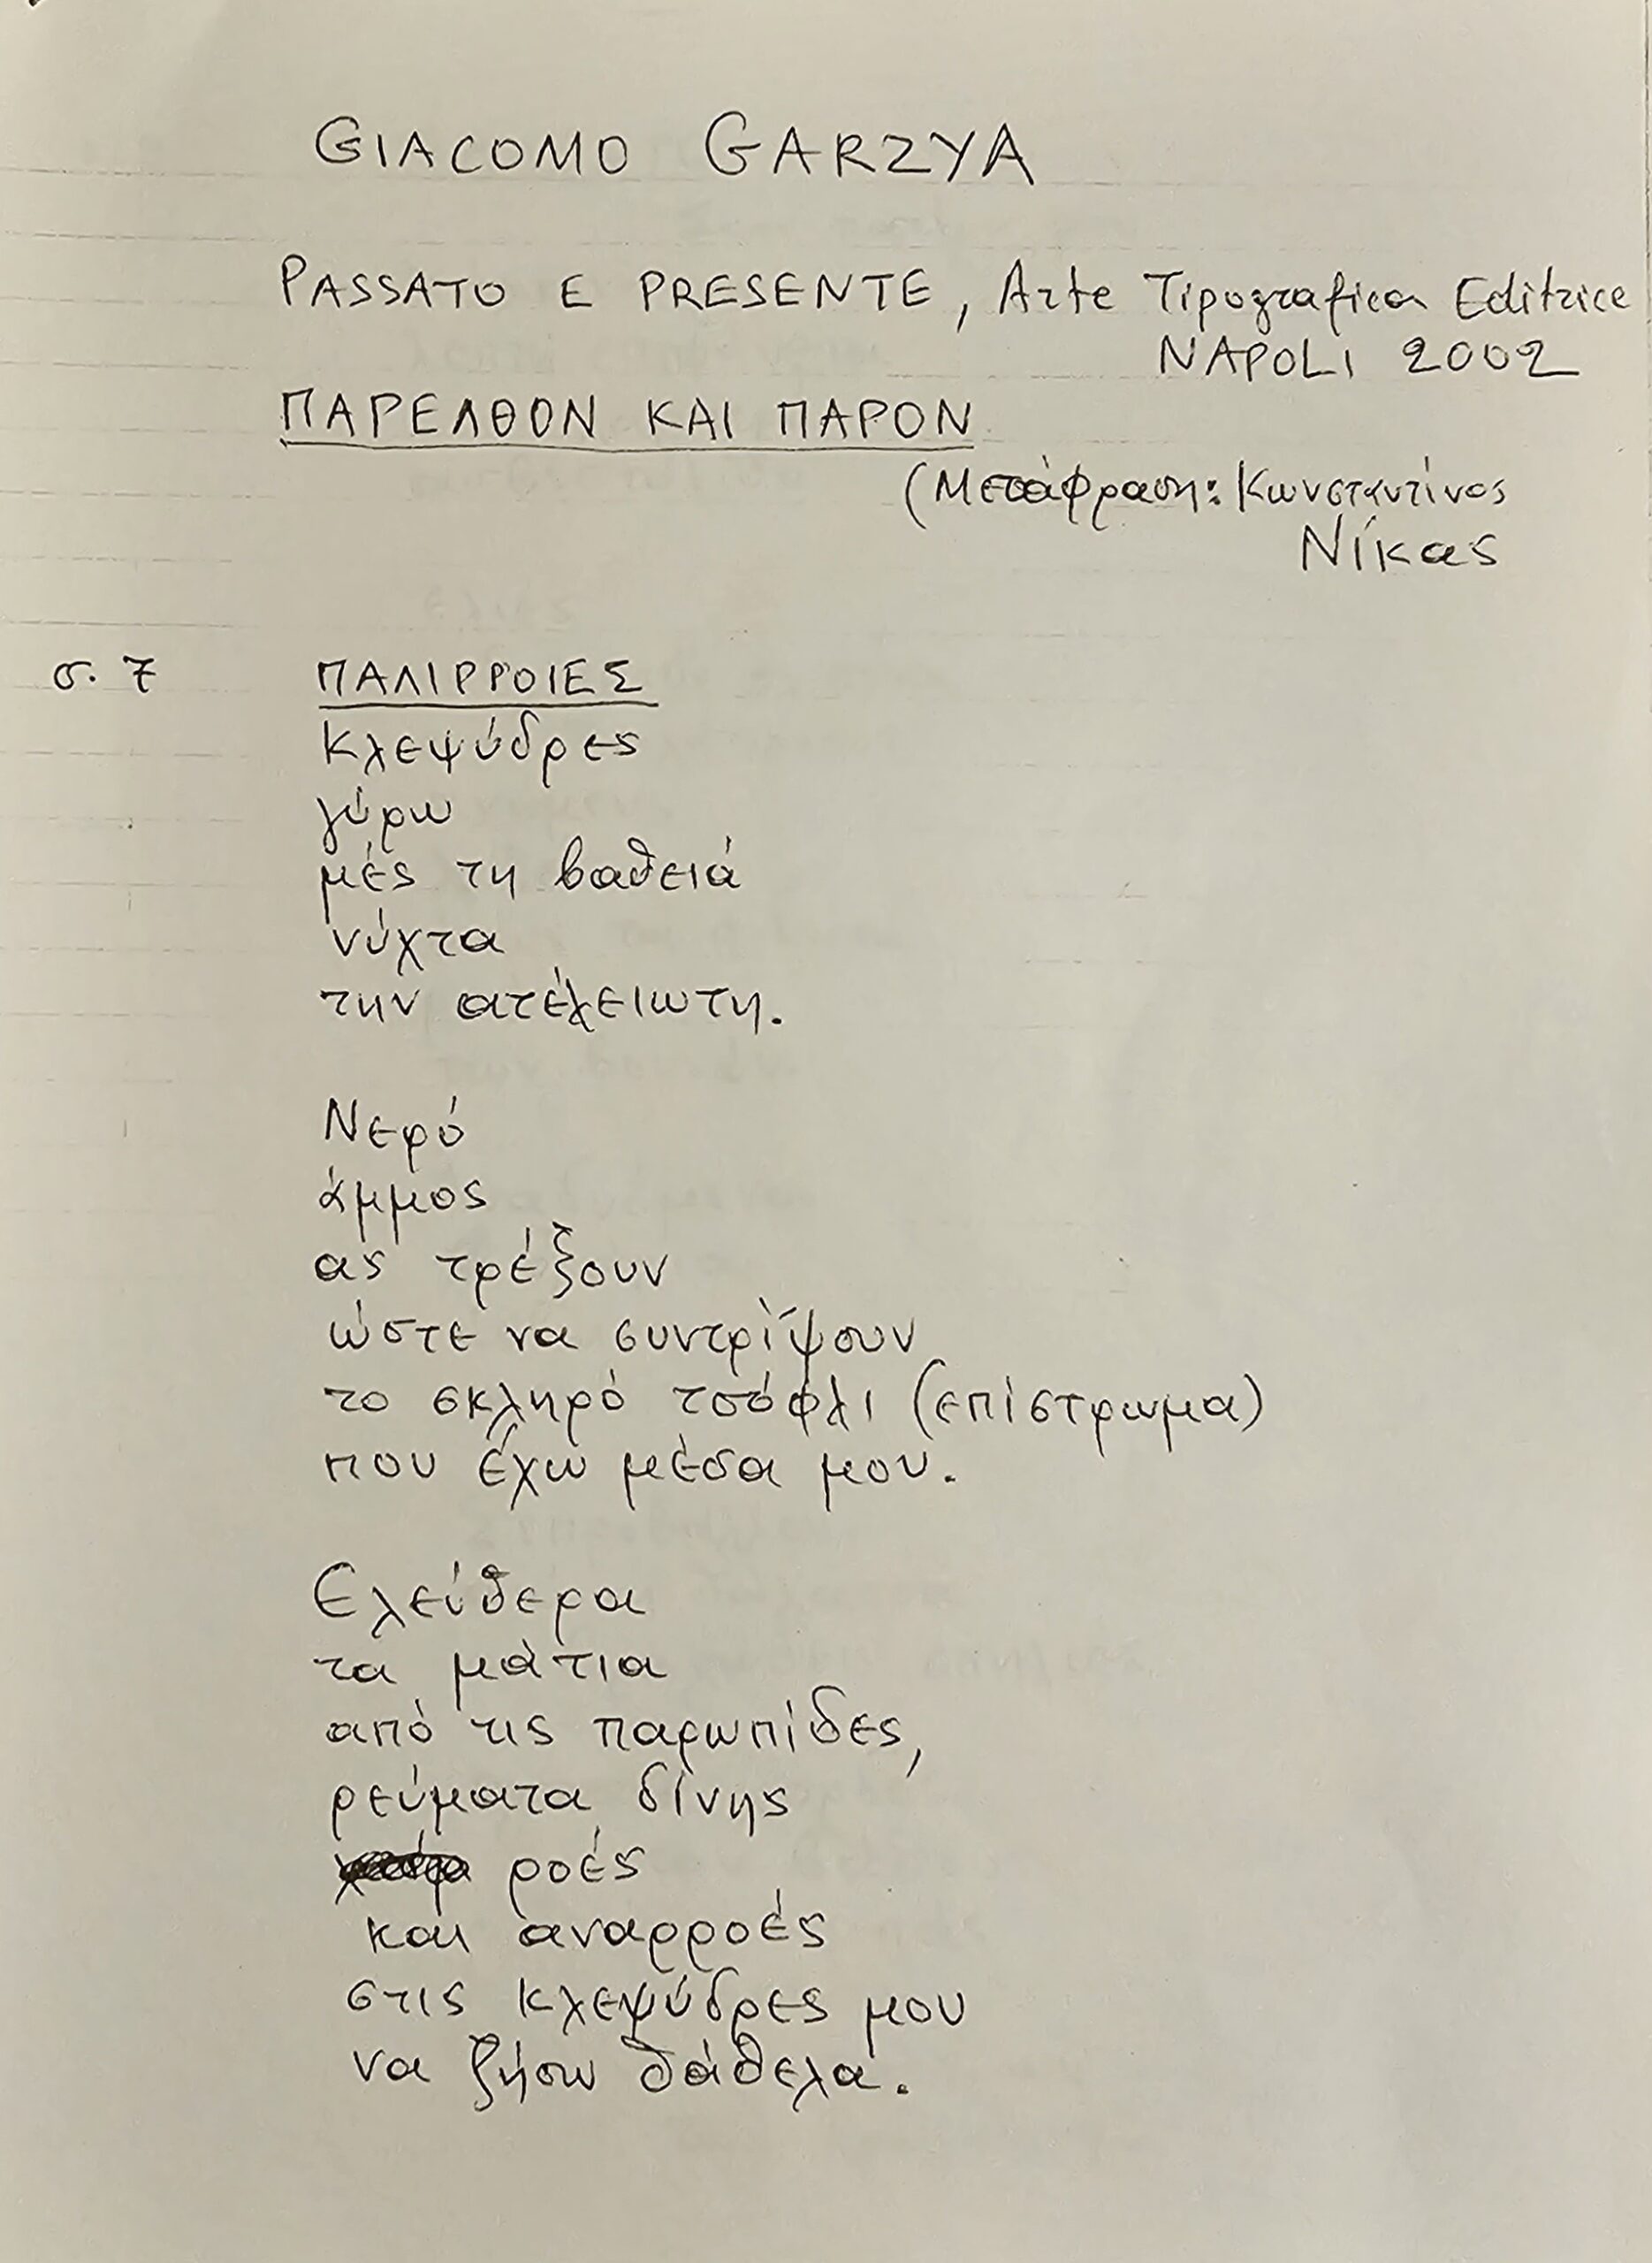 GIACOMO GARZYA
PASSATO E PRESENTE, Arte Tipografica Editrice
NAPOLI 2002
ΠΑΡΕΛΘΟΝ ΚΑΙ ΠΑΡΟΝ
(Μετάφραση: Κωνσταντίνος
Νίκας
σ. 7 ΠΑΛΙΡΡΟΙΕΣ
Κλεψύδρες
γύρω
μές τη βαθειά
νύχτα
την ατέλειωτη.
Νερό
άμμος
ας τρέξουν
ώστε να συντρίψουν
το σκληρό τσόφλι (επίστρωμα)
που έχω μέσα μου.
Ελεύθερα
τα μάτια
από τις παρωπίδες,
ρεύματα δίνης
ροές
και αναρροές
στις κλεψύδρες μου
να ζήσω θάθελα.